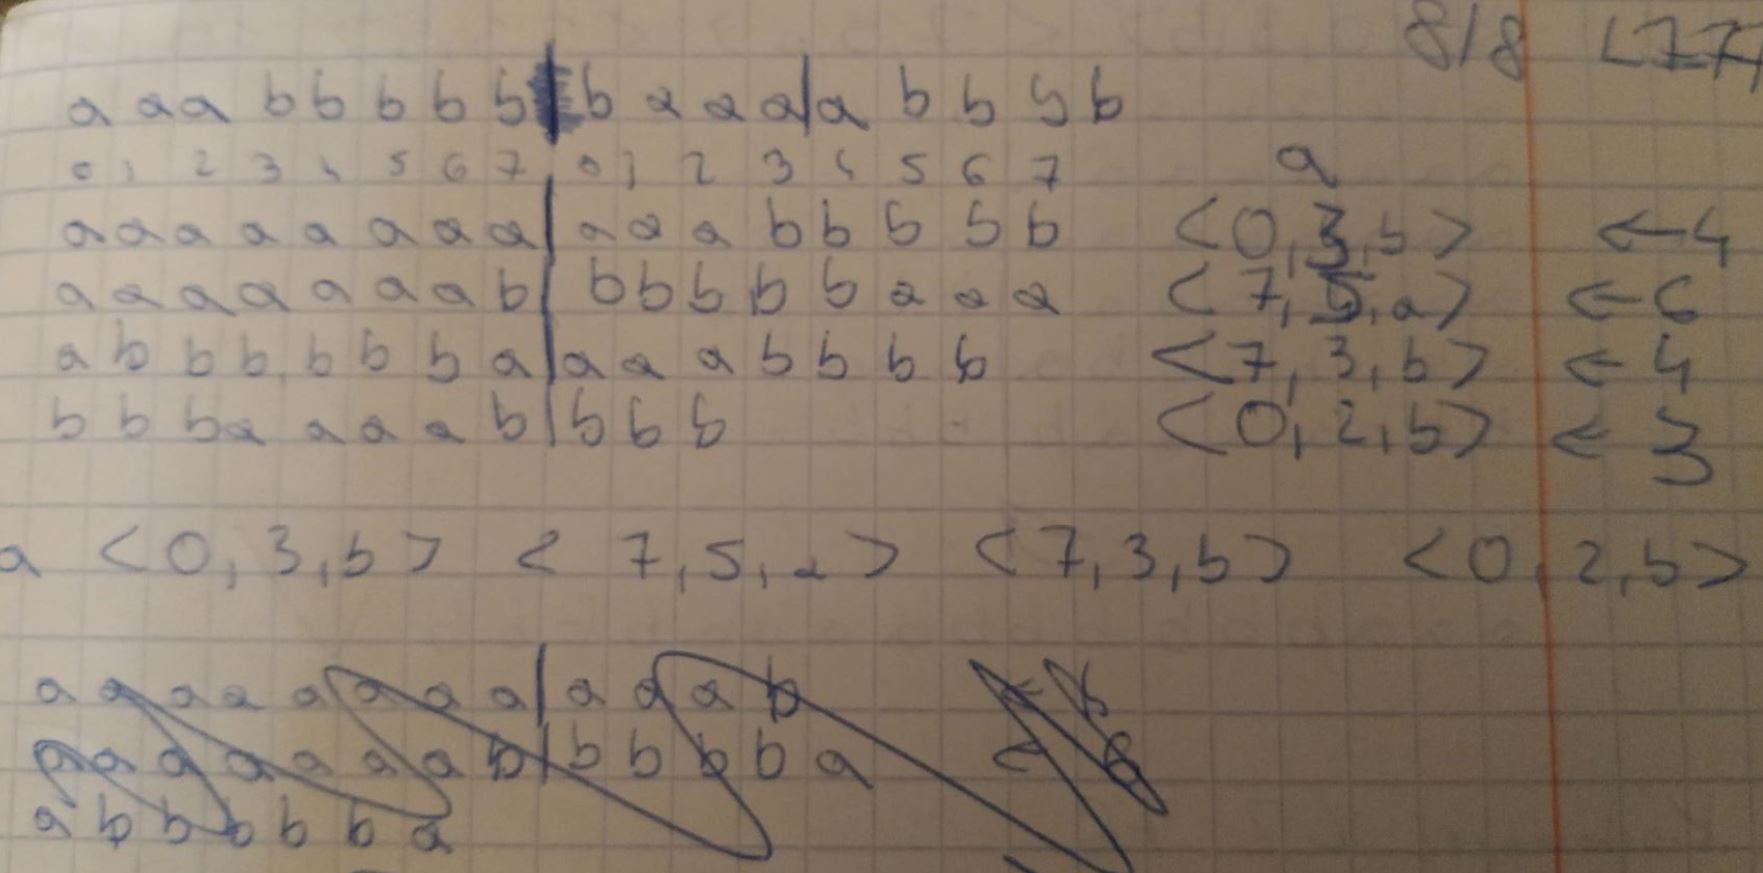 8/8 LZ77
a a a b b b b b | b a a a | a b b b b
0 1 2 3 4 5 6 7 0 1 2 3 4 5 6 7 a
a a a a a a a a | a a a b b b b b <0, 3, b> ← 4
a a a a a a a b | b b b b b a a a <7, 5, a> ← 6
a b b b b b b a | a a a b b b b <7, 3, b> ← 4
b b b a a a a b | b b b <0, 2, b> ← 3
a <0, 3, b> <7, 5, a> <7, 3, b> <0, 2, b>
a a a a a a a a | a a a b
a a a a a a a b | b b b b a
a b b b b b a